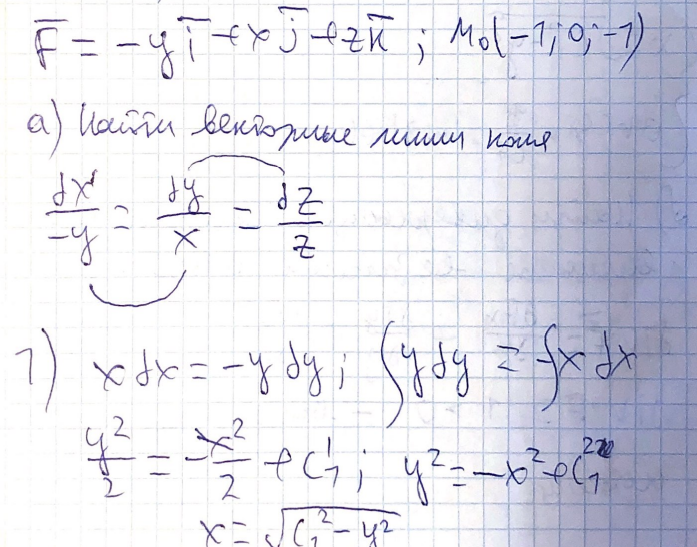 F̅ = -y i̅ + x j̅ + z k̅ ; M₀(-1; 0; -1)
а) Найти векторные линии поля
dx/-y = dy/x = dz/z
1) x dx = -y dy; ∫y dy = -∫x dx
y²/2 = -x²/2 + C₁¹; y² = -x² + C₁²
x = √(C₁² - y²)